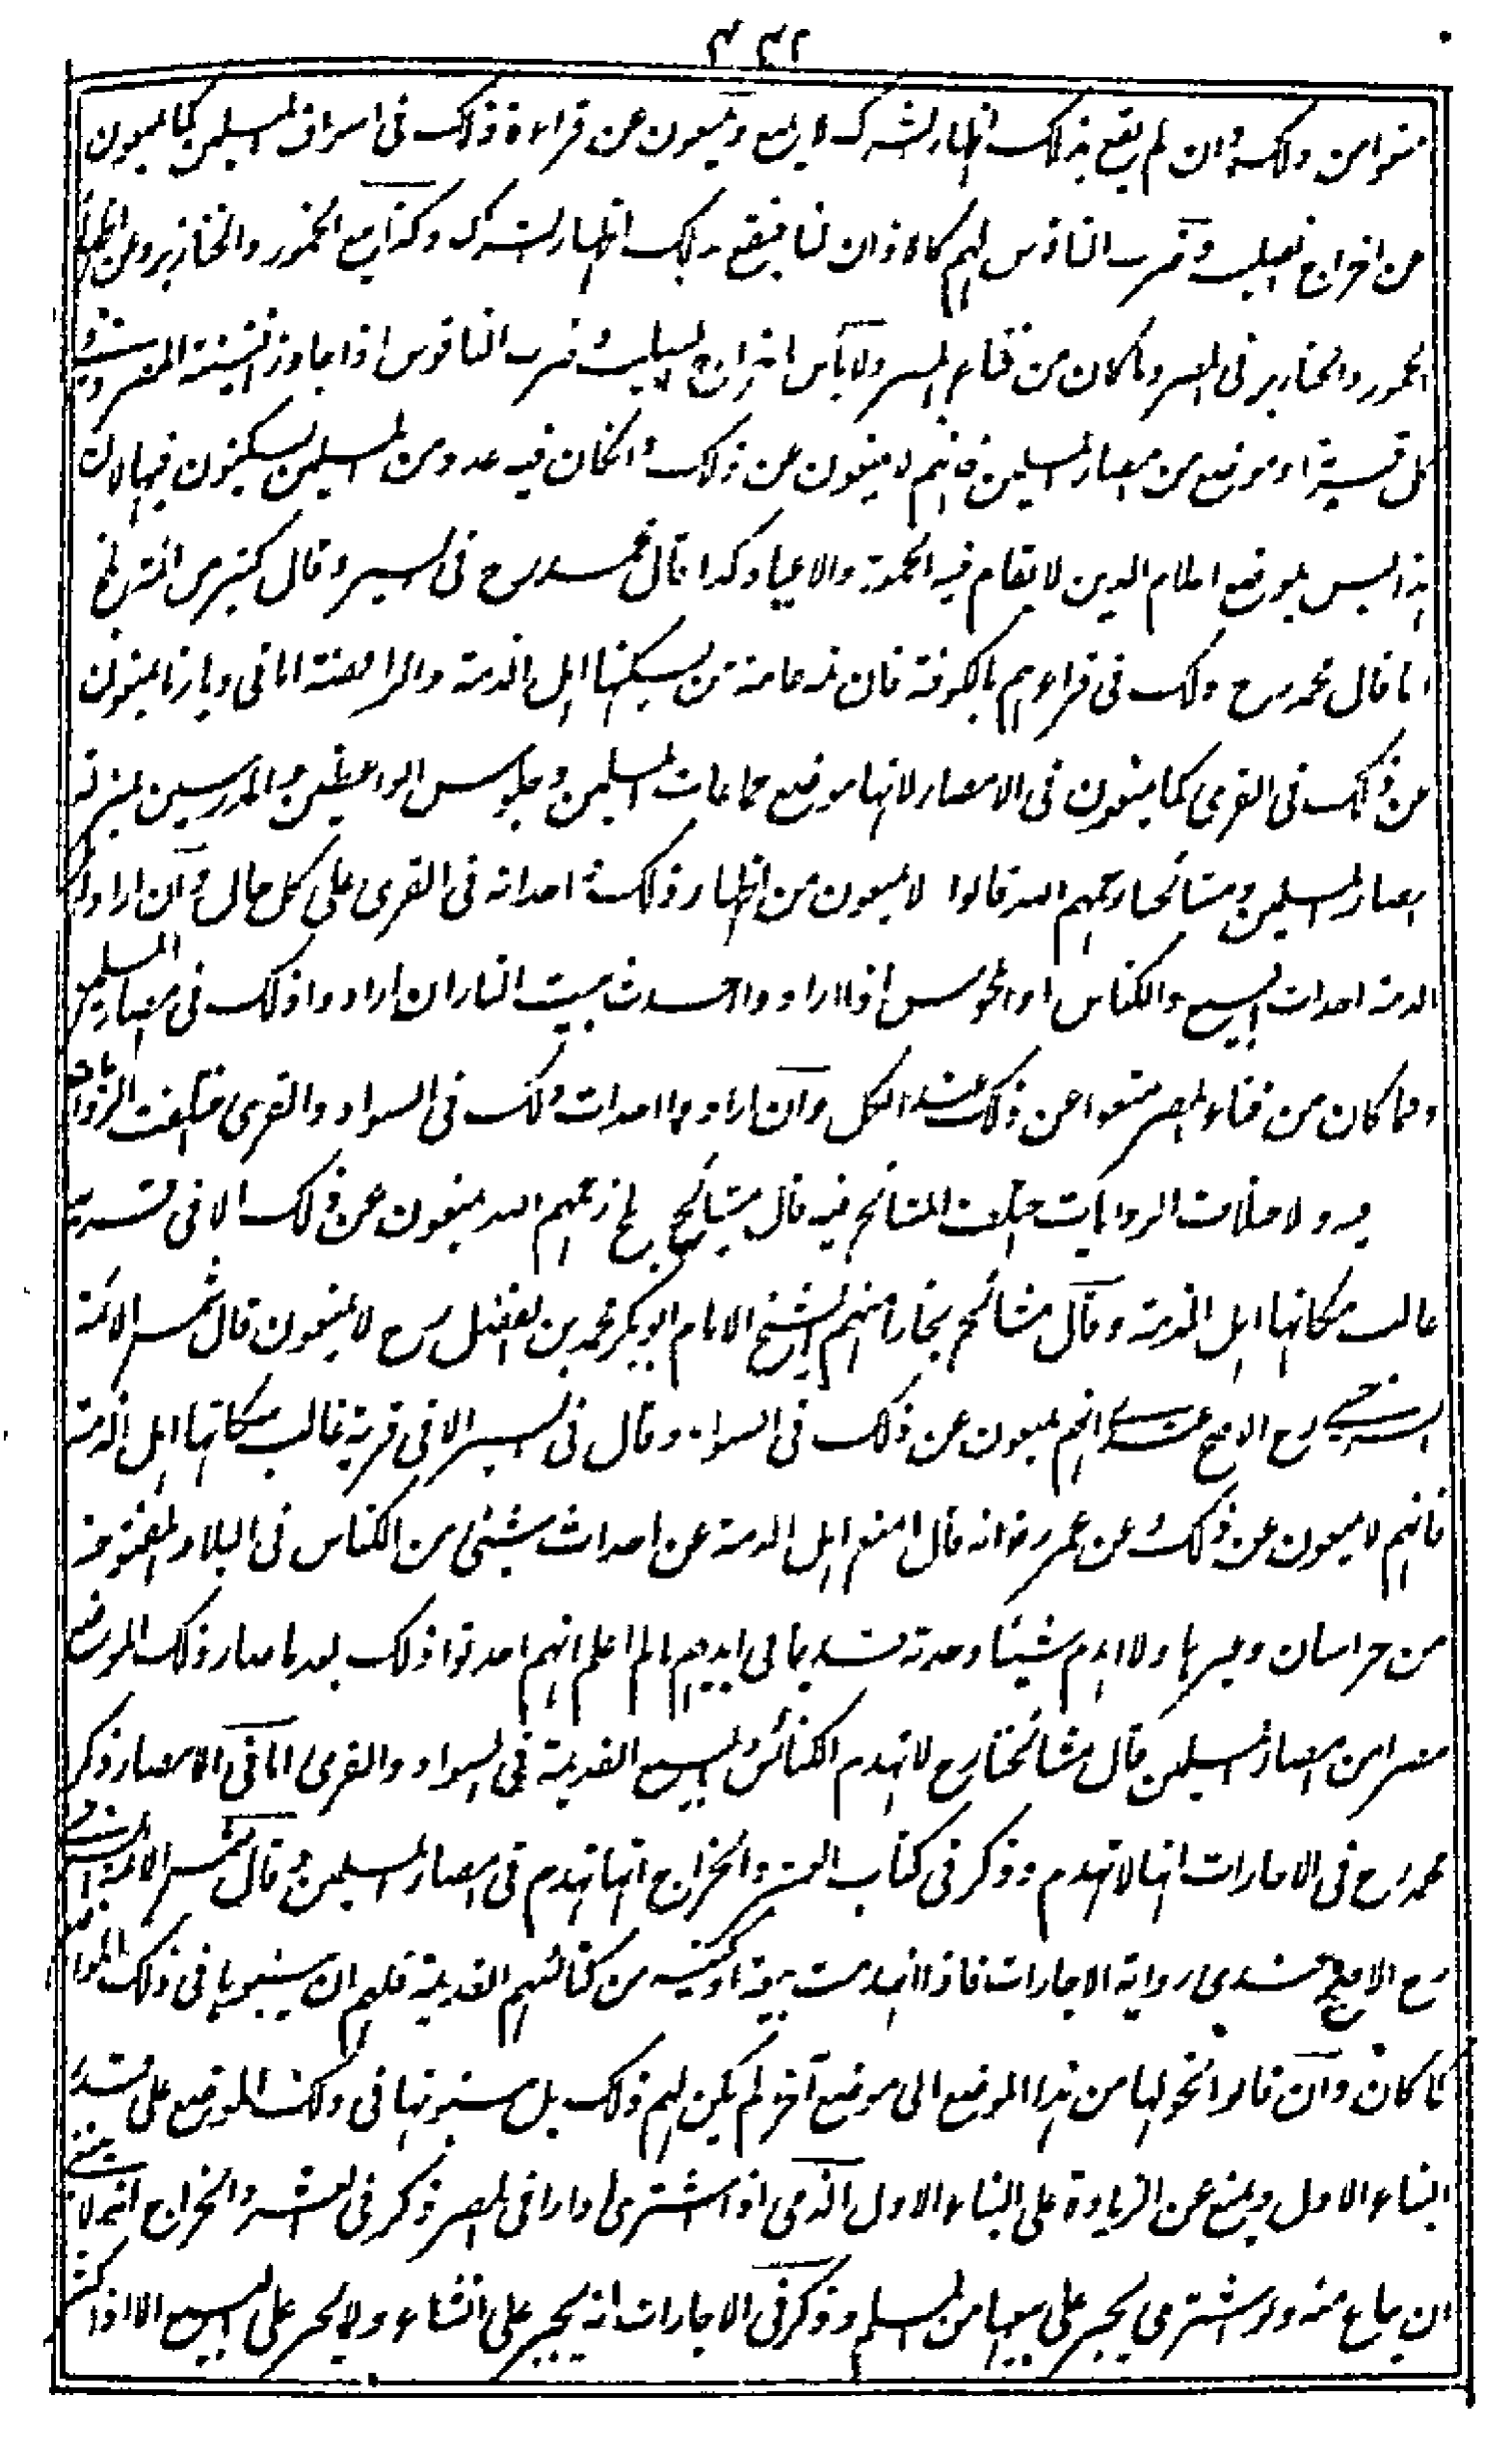 ٤٤٢
منعوا من ذلك وان لم يقع بذلك اظهار الشرك لا يمنع ويمنعون عن قراءة ذلك فى اسواق المسلمين كما يمنعون
من اخراج الصليب وضرب الناقوس لهم كالاذان لنا فيقع بذلك اظهار الشرك وكذا بيع الخمور والخنازير وعن اظهار
الخمور والخنازير فى المصر وما كان من فناء المصر ولا بأس باخراج الصليب وضرب الناقوس اذا جاوز افنية المصر وفى
كل قرية او موضع من امصار المسلمين فانهم لا يمنعون عن ذلك وان كان فيه عدد من المسلمين يسكنون فيها لان
هذا ليس بموضع اعلام الدين لا يقام فيه الجمعة والاعياد كذا قال محمد رح فى السير وقال كثير من ائمة بلخ
انما قال محمد رح ذلك فى قراهم بالكوفة فان ثمه عامة من يسكنها اهل الذمة والرافضة اما فى ديارنا يمنعون
عن ذلك فى القرى كما يمنعون فى الامصار لانها موضع جماعات المسلمين وجلوس الواعظين والمدرسين بمنزلة
امصار المسلمين ومشائخنا رحمهم الله قالوا لا يمنعون من اظهار ذلك واحداثه فى القرى على كل حال وان ارادوا اهل
الذمة احداث البيع والكنائس او المجوس اذا ارادوا احداث بيت النار ان ارادوا ذلك فى امصار المسلمين
وفيما كان من فناء المصر منعوا عن ذلك عند الكل وان ارادوا احداث ذلك فى السواد والقرى اختلفت الروايات
فيه ولاختلاف الروايات اختلف المشائخ فيه قال مشائخ بلخ رحمهم الله يمنعون عن ذلك الا فى قرية
غالب سكانها اهل الذمة وقال مشائخ بخارا منهم الشيخ الامام ابو بكر محمد بن الفضل رح لا يمنعون قال شمس الائمة
السرخسى رح الاصح عندى انهم يمنعون عن ذلك فى السواد وقال فى السير الا فى قرية غالب سكانها اهل الذمة
فانهم لا يمنعون عن ذلك وعن عمر رض انه قال امنع اهل الذمة عن احداث شيئ من الكنائس فى البلاد المفتوحة
من خراسان وغيرها ولا اهدم شيئا وجدته قديما فى ايديهم ما لم اعلم انهم احدثوا ذلك بعد ما صار ذلك الموضع
مصرا من امصار المسلمين قال مشائخنا رح لا تهدم الكنائس والبيع القديمة فى السواد والقرى اما فى الامصار ذكر
محمد رح فى الاجارات انها لا تهدم وذكر فى كتاب العشر والخراج انها تهدم فى امصار المسلمين وقال شمس الائمة السرخسى
رح الاصح عندى رواية الاجارات فاذا انهدمت بيعة او كنيسة من كنائسهم القديمة فلهم ان يبنوها فى ذلك الموضع
كما كان وان قالوا نحولها من هذا الموضع الى موضع آخر لم يكن لهم ذلك بل يبنونها فى ذلك الموضع على قدر
البناء الاول ويمنع عن الزيادة على البناء الاول الذمى اذا اشترى دارا فى المصر ذكر فى العشر والخراج انه لا ينبغى
ان يباع منه ولو اشترى يجبر على بيعها من المسلم وذكر فى الاجارات انه يجبر على الشاء ولا يجبر على البيع الا اذا كثر